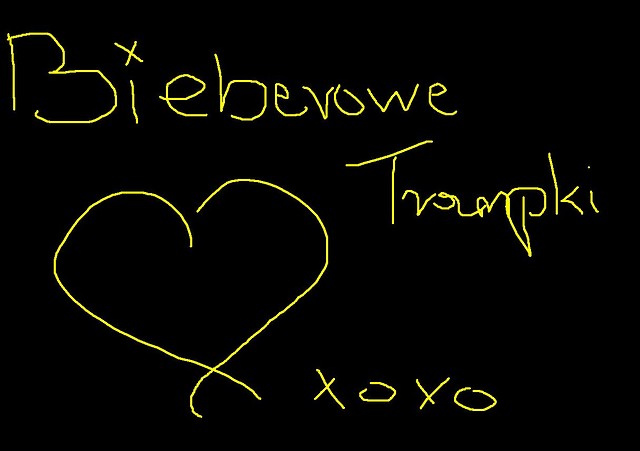 Bieberowe
Trampki
xoxo